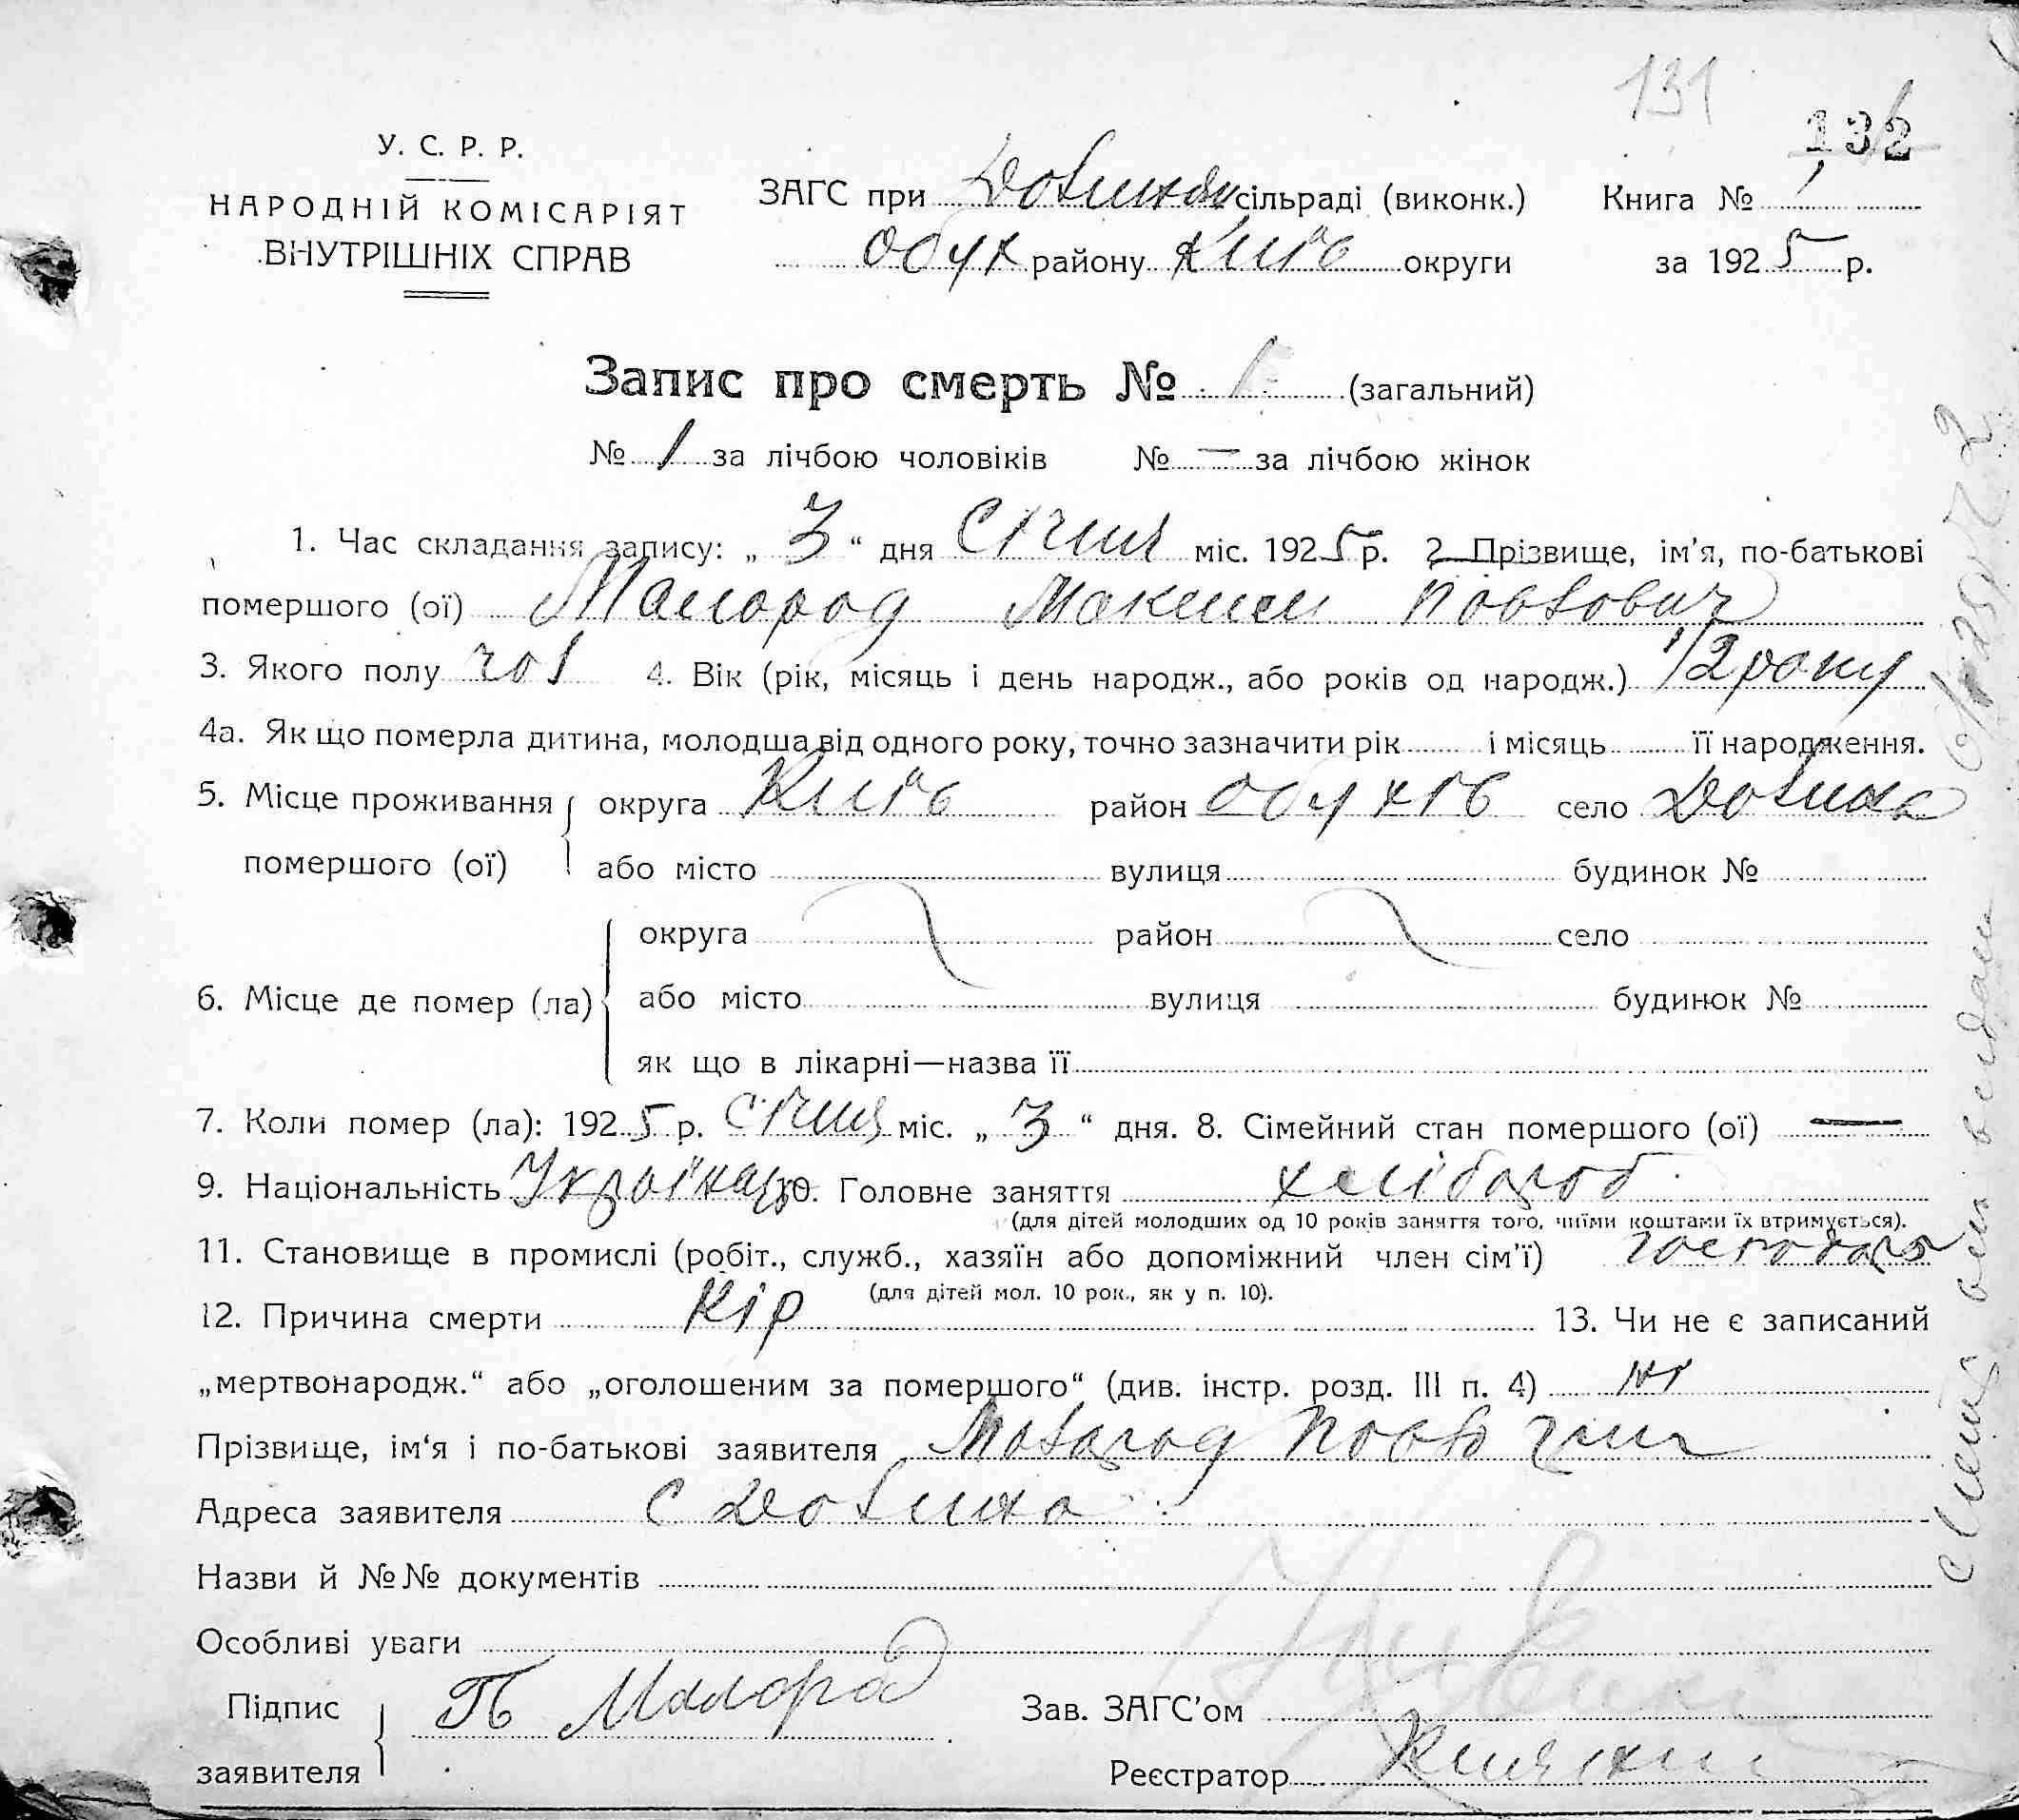 131
132
У. С. Р. Р.
НАРОДНІЙ КОМІСАРІЯТ
ВНУТРІШНІХ СПРАВ
ЗАГС при Долинян сільраді (виконк.) Книга № 1
Обух району Київ округи за 1925 р.
Запис про смерть № 1 (загальний)
№ 1 за лічбою чоловіків № — за лічбою жінок
1. Час складання запису: „ 3 “ дня Січня міс. 1925 р. 2. Прізвище, ім’я, по-батькові
помершого (ої) Малород Максим Павлович
3. Якого полу чол 4. Вік (рік, місяць і день народж., або років од народж.) 1/2 року
4а. Як що померла дитина, молодша від одного року, точно зазначити рік і місяць її народження.
5. Місце проживання помершого (ої) округа Київ район Обухів село Долина
або місто вулиця будинок №
6. Місце де помер (ла) округа район село
або місто вулиця будинок №
як що в лікарні—назва її
7. Коли помер (ла): 1925 р. січня міс. „ 3 “ дня. 8. Сімейний стан помершого (ої) —
9. Національність Українец 10. Головне заняття хлібороб
(для дітей молодших од 10 років заняття того, чиїми коштами їх втримується).
11. Становище в промислі (робіт., служб., хазяїн або допоміжний член сім’ї) господар
(для дітей мол. 10 рок., як у п. 10).
12. Причина смерти Кір 13. Чи не є записаний
„мертвонародж.“ або „оголошеним за помершого“ (див. інстр. розд. III п. 4) ні
Прізвище, ім‘я і по-батькові заявителя Малород Павло
Адреса заявителя с Долина
Назви й №№ документів
Особливі уваги
Підпис заявителя П Малород Зав. ЗАГС’ом
Реєстратор